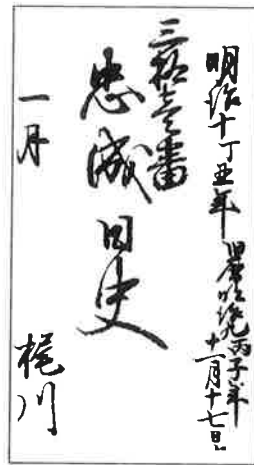 明治十丁丑年
旧暦明治九丙子年
十一月十七日
三拾壱番
忠誠日史
一月
梶川